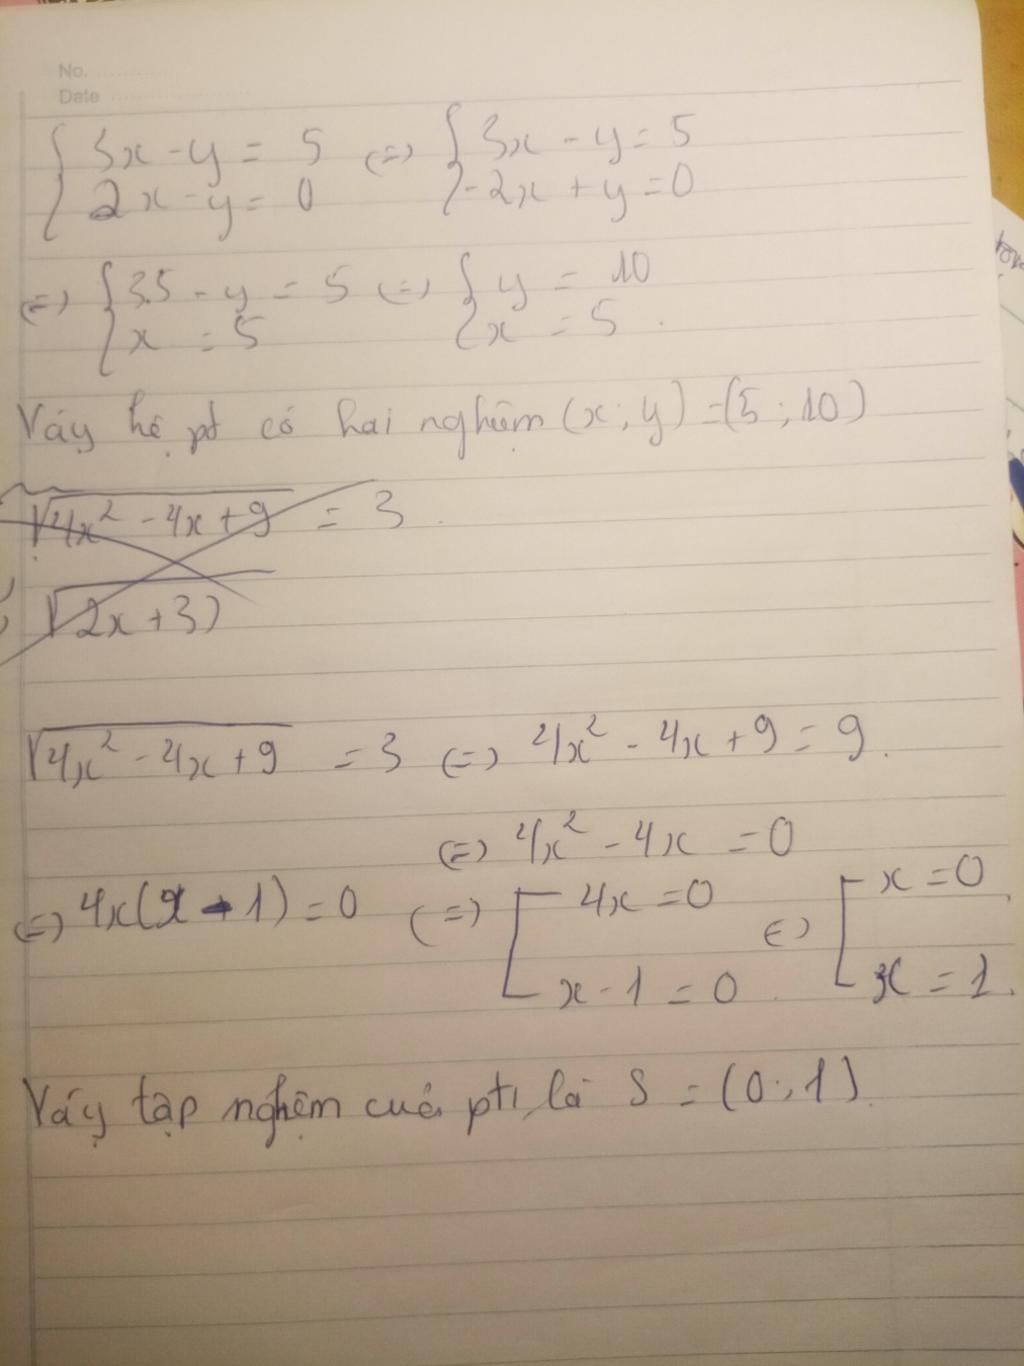 No.
Date
{ 3x - y = 5 (=) { 3x - y = 5
{ 2x - y = 0 { -2x + y = 0
(=) { 3.5 - y = 5 (=) { y = 10
{ x = 5 { x = 5 .
Váy hệ pt có hai nghiệm (x; y) = (5; 10)
√4x² - 4x + 9 = 3 .
√2x + 3)
√4x² - 4x + 9 = 3 (=) 4x² - 4x + 9 = 9 .
(=) 4x² - 4x = 0
(=) 4x(x - 1) = 0 (=) [ 4x = 0 (=) [ x = 0
x - 1 = 0 x = 1 .
Vậy tập nghệm cuả pt là S = (0; 1)